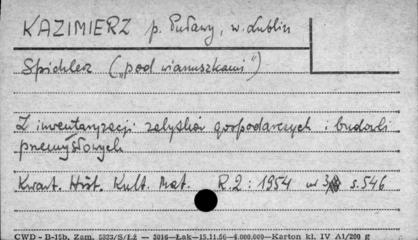 KAZIMIERZ p. Puławy, w. Lublin
Spichlerz („pod wianuszkami")
Z inwentaryzacji zabytków gospodarczych i budowli
przemysłowych
Kwart. Hist. Kult. Mat. R.2: 1954 nr 3 s.546
CWD - B-15b. Zam. 5323/S/Łż — 3016—Łak—15.11.56—4.000.000—Karton kl. IV A1/200 g